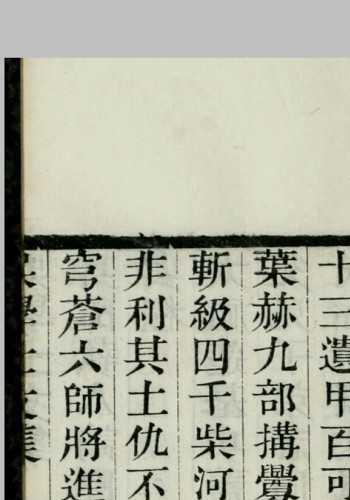 十三遺甲百可
葉赫九部搆釁
斬級四千柴河
非利其土仇不
穹蒼六師將進